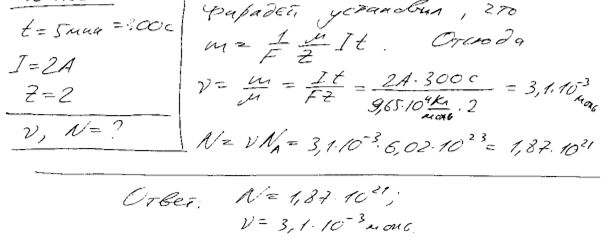 t = 5мин = 300с
I = 2А
Z = 2
ν, N = ?
Фарадей установил, что
m = 1/F μ/Z It. Отсюда
ν = m/μ = It/FZ = 2А·300с / 9,65·10⁴ Кл/моль · 2 = 3,1·10⁻³ моль
N = νN_A = 3,1·10⁻³·6,02·10²³ = 1,87·10²¹
Ответ: N = 1,87·10²¹;
ν = 3,1·10⁻³ моль.